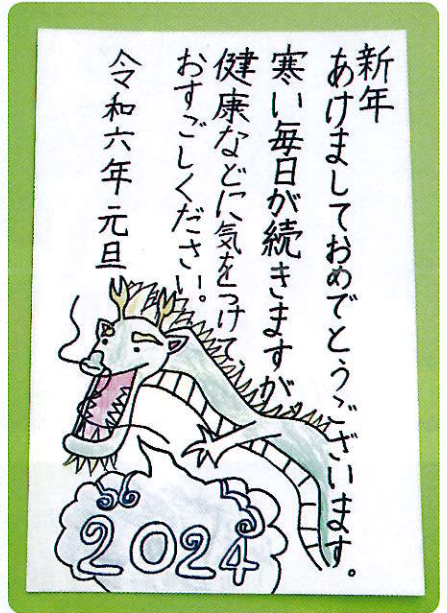 新年
あけましておめでとうございます。
寒い毎日が続きますが、
健康などに気をつけて、
おすごしください。
令和六年元旦
2024